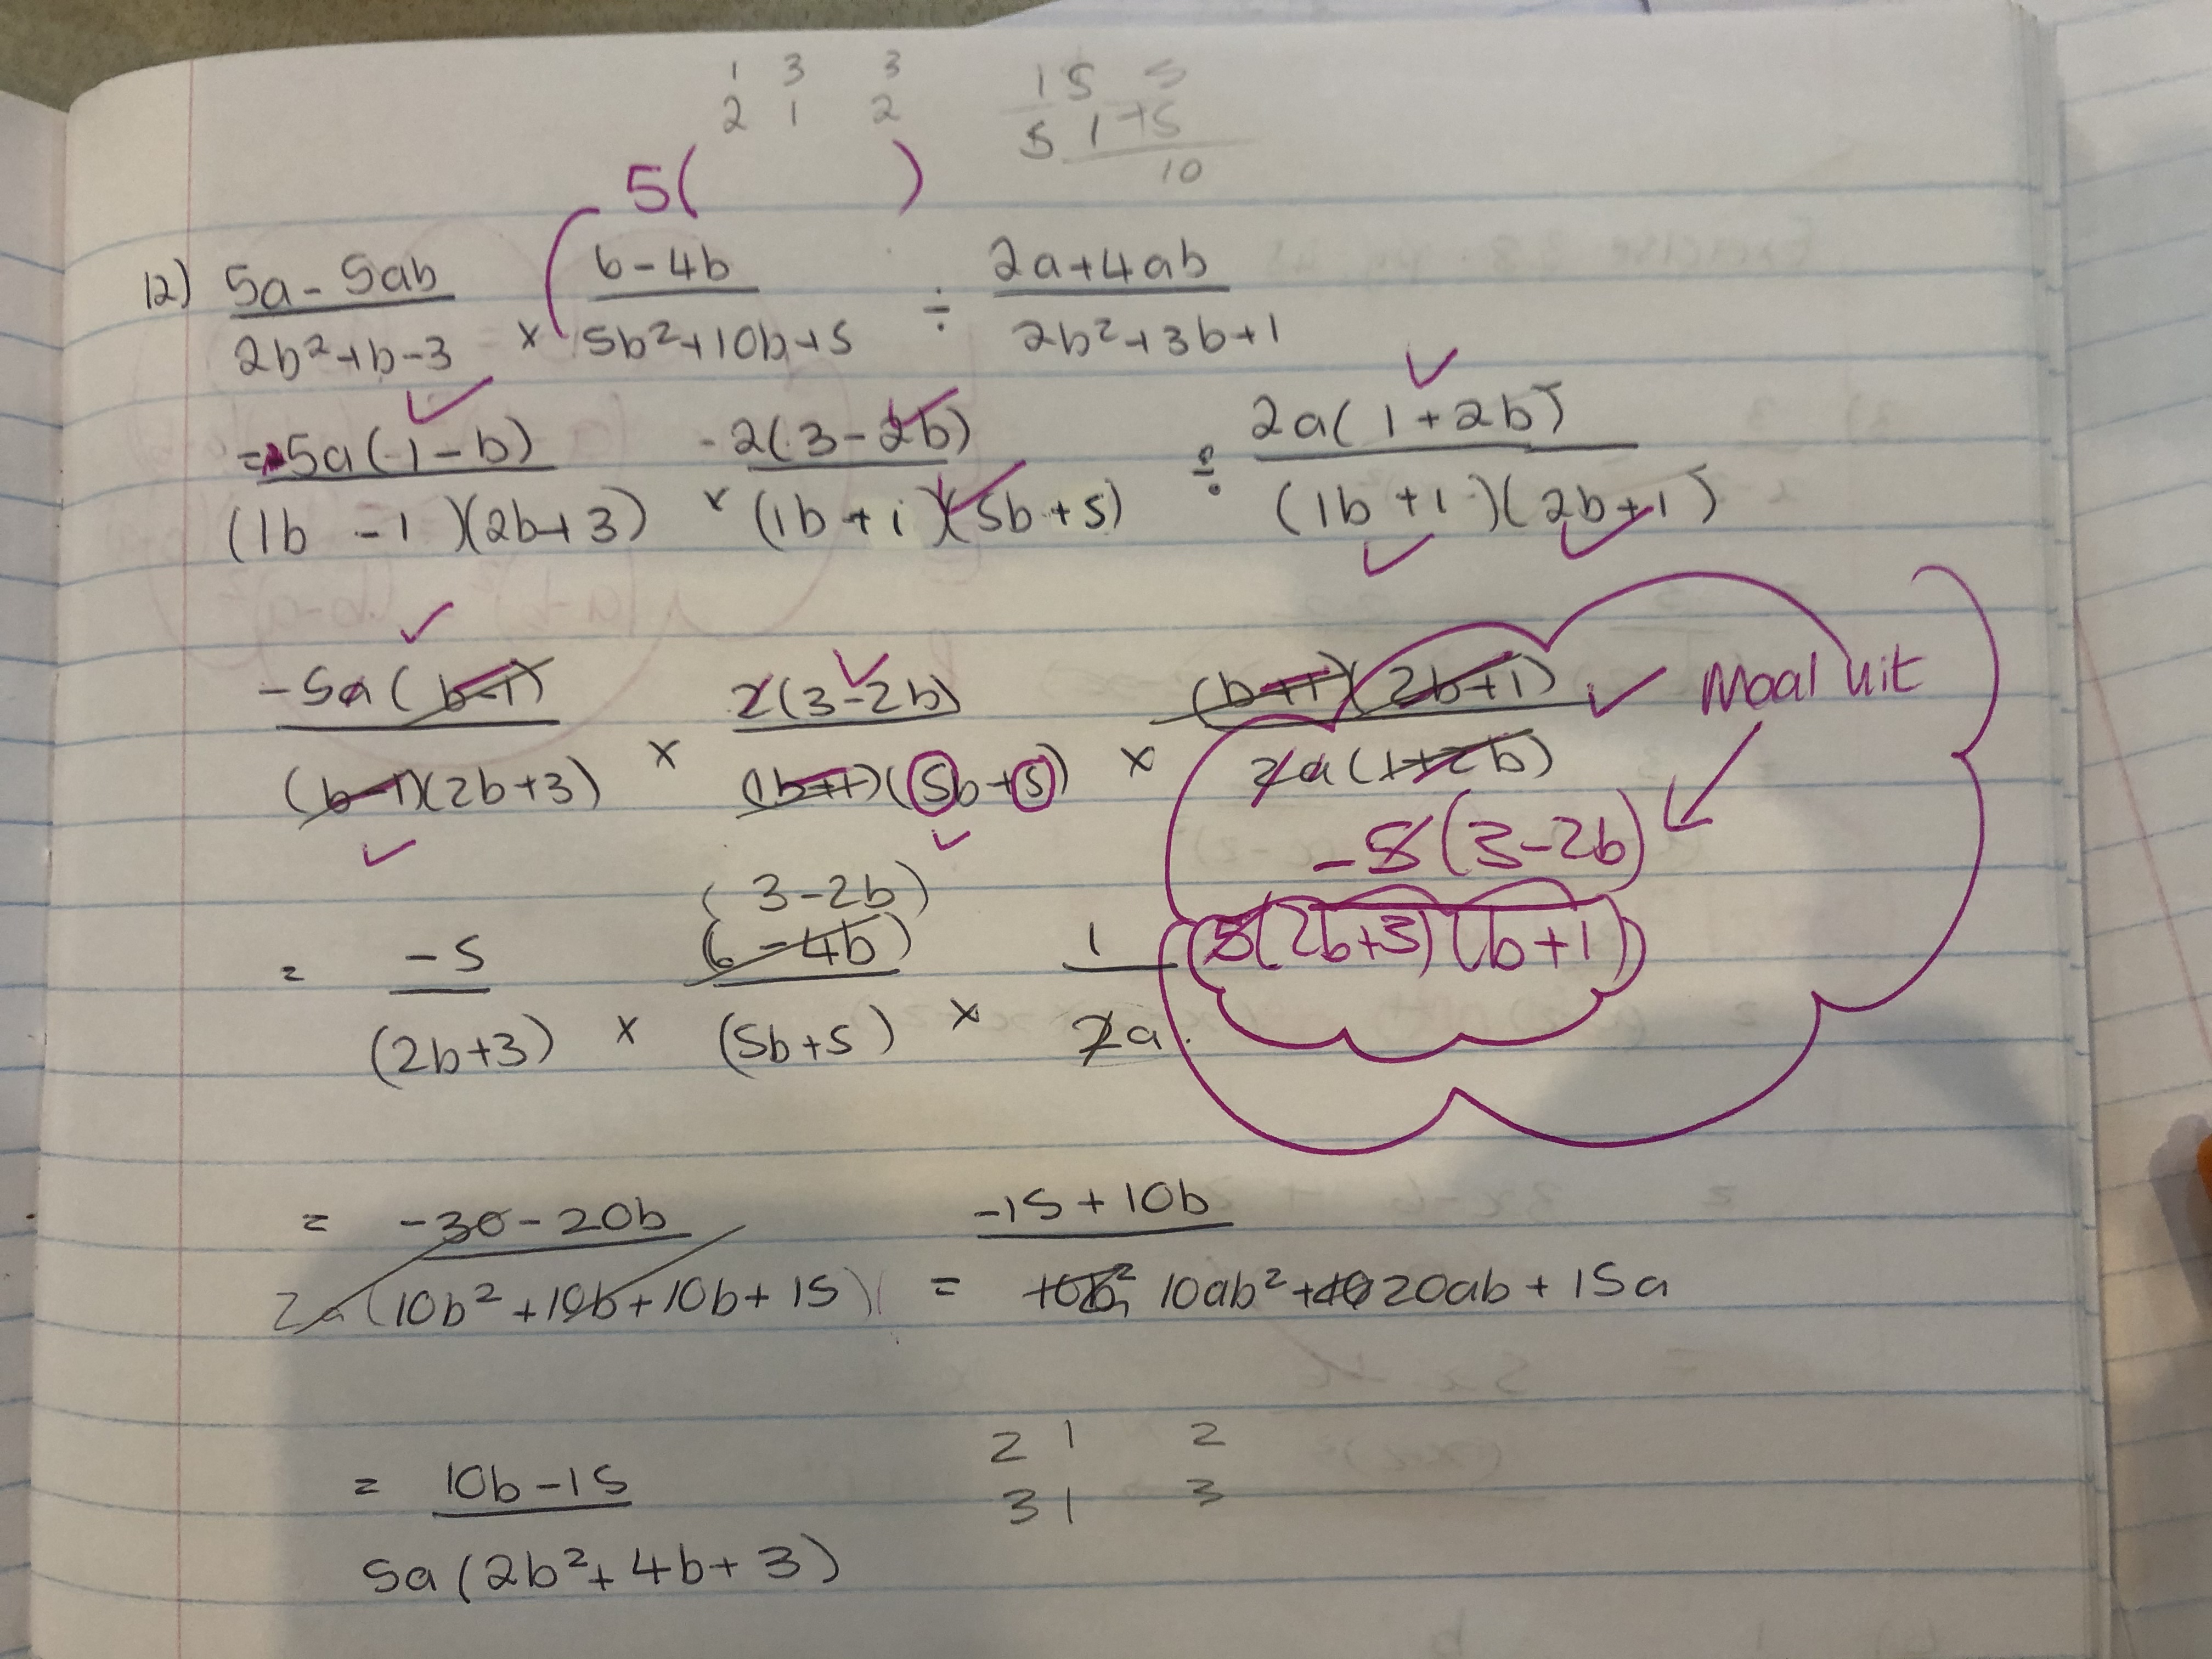 1 3 3
2 1 2
15 5
5 1 +5
10
5( )
12) (5a - 5ab)/(2b² + b - 3) × (6 - 4b)/(5b² + 10b + 5) ÷ (2a + 4ab)/(2b² + 3b + 1)
= 5a(1 - b)/(1b - 1)(2b + 3) × 2(3 - 2b)/(1b + 1)(5b + 5) ÷ 2a(1 + 2b)/(1b + 1)(2b + 1)
-5a(b-1)/(b-1)(2b+3) × 2(3-2b)/(b+1)(5b+5) × (b+1)(2b+1)/2a(1+2b) Maal uit
-5(3-2b)/(5(2b+3)(b+1))
(3-2b)
= -5/(2b+3) × (6-4b)/(5b+5) × 1/2a
= -30-20b/2a(10b²+10b+10b+15) = -15+10b/10b² 10ab²+40 20ab+15a
= 10b-15/5a(2b²+4b+3)
2 1 2
3 1 3